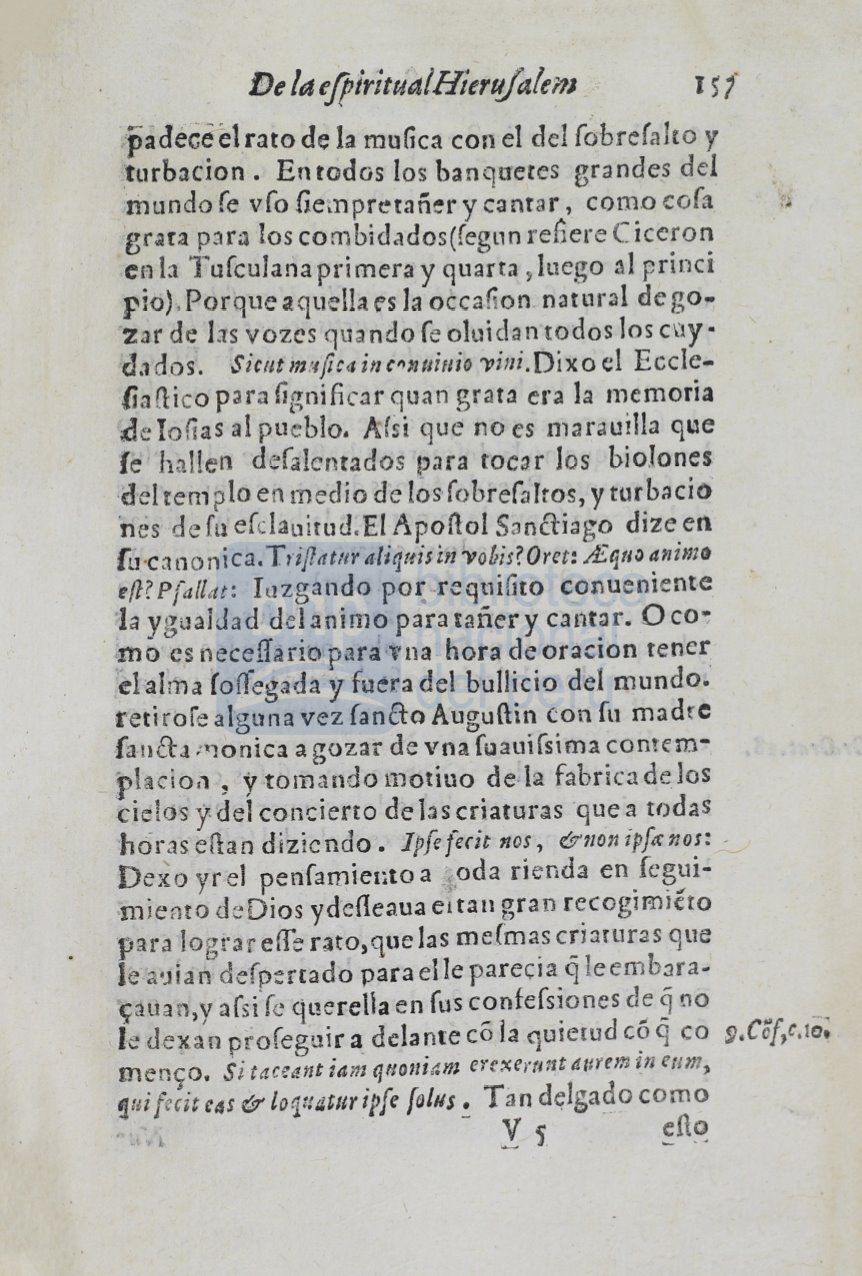 De la eſpiritual Hieruſalem 157
padece el rato de la muſica con el del ſobreſalto y
turbacion . En todos los banquetes grandes del
mundo ſe vſo ſiempre tañer y cantar, como coſa
grata para los combidados (ſegun refiere Ciceron
en la Tuſculana primera y quarta, luego al princi
pio). Porque aquella es la occaſion natural de go-
zar de las vozes quando ſe oluidan todos los cuy-
dados. Sicut muſica in conuiuio vini. Dixo el Eccle-
ſiaſtico para ſignificar quan grata era la memoria
de Ioſias al pueblo. Aſsi que no es marauilla que
ſe hallen deſalentados para tocar los biolones
del templo en medio de los ſobreſaltos, y turbacio
nes de ſu eſclauitud. El Apoſtol Sanctiago dize en
ſu canonica. Triſtatur aliquis in vobis? Oret: Æquo animo
eſt? Pſallat: Iuzgando por requiſito conueniente
la ygualdad del animo para tañer y cantar. O co-
mo es neceſſario para vna hora de oracion tener
el alma ſoſſegada y fuera del bullicio del mundo.
retiroſe alguna vez ſancto Auguſtin con ſu madre
ſancta monica a gozar de vna ſuauiſsima contem-
placion , y tomando motiuo de la fabrica de los
cielos y del concierto de las criaturas que a todas
horas eſtan diziendo . Ipſe fecit nos, & non ipſæ nos:
Dexo yr el penſamiento a toda rienda en ſegui-
miento de Dios y deſſeaua en tan gran recogimiẽto
para lograr eſſe rato, que las meſmas criaturas que
le auian deſpertado para el le parecia q̃ le embara-
çauan, y aſsi ſe querella en ſus confeſsiones de q̃ no
le dexan proſeguir a delante cõ la quietud cõ q̃ co 9. Cõf, c. 10.
menço. Si taceant iam quoniam erexerunt aurem in eum,
qui fecit eas & loquatur ipſe ſolus . Tan delgado como
V 5 eſto